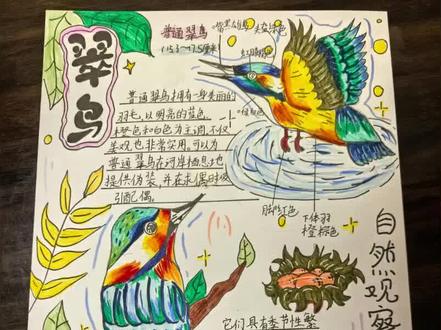 翠鸟
普通翠鸟
背黑色鸟
头灰绿色
红腮
普通翠鸟拥有一身美丽的
羽毛,以明亮的蓝色、
橙色和白色为主调,不仅
美观,也非常实用,可以为
普通翠鸟在河岸栖息时
提供伪装,并在求偶时吸
引配偶。
脚红色
下体羽
橙棕色
(1)
自然观察
它们具有季节性繁